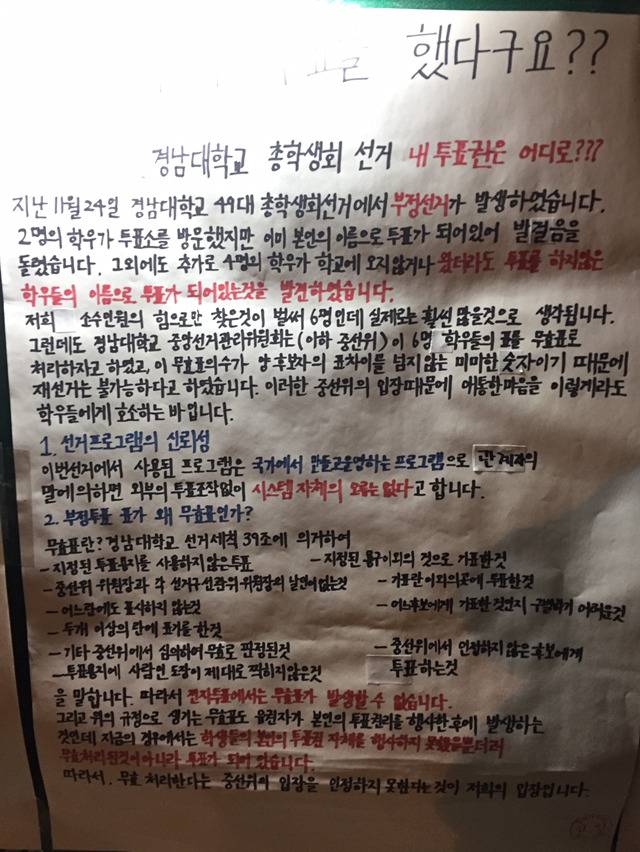 했다구요??
경남대학교 총학생회 선거 내 투표권은 어디로???
지난 11월 24일 경남대학교 49대 총학생회선거에서 부정선거가 발생하였습니다.
2명의 학우가 투표소를 방문했지만 이미 본인의 이름으로 투표가 되어있어 발걸음을
돌렸습니다. 그외에도 추가로 4명의 학우가 학교에 오지않거나 왔더라도 투표를 하지않은
학우들의 이름으로 투표가 되어있는것을 발견하였습니다.
저희 소수인원의 힘으로만 찾은것이 벌써 6명인데 실제로는 훨씬 많을것으로 생각됩니다.
그런데도 경남대학교 중앙선거관리위원회는(이하 중선위)이 6명 학우들의 표를 무효표로
처리하자고 하였고, 이 무효표의수가 양후보자의 표차이를 넘지않는 미미한 숫자이기 때문에
재선거는 불가능하다고 하였습니다. 이러한 중선위의 입장때문에 애통한마음을 이렇게라도
학우들에게 호소하는 바입니다.
1. 선거프로그램의 신뢰성
이번선거에서 사용된 프로그램은 국가에서 만들고운영하는 프로그램으로 관계자의
말에의하면 외부의 투표조작없이 시스템 자체의 오류는 없다고 합니다.
2. 부정투표 표가 왜 무효표인가?
무효표란? 경남대학교 선거세칙 39조에 의거하여
- 지정된 투표용지를 사용하지 않은투표 - 지정된 용구이외의 것으로 기표한것
- 중선위 위원장과 각 선거구선관위 위원장의 날인이없는것 - 기표란 이외의곳에 투표한것
- 어느란에도 표시하지 않는것 - 어느후보에게 기표한것인지 구별하기 어려운것
- 두개 이상의 란에 표기를 한것
- 기타 중선위에서 심의하여 무효로 판정된것 - 중선위에서 인정하지 않은 후보에게
- 투표용지에 사람인 도장이 제대로 찍히지않은것 투표하는것
을 말합니다. 따라서 전자투표에서는 무효표가 발생할 수 없습니다.
그리고 위의 규정으로 생기는 무효표도 유권자가 본인의 투표권리를 행사한후에 발생하는
것인데 지금의 경우에서는 학생들의 본인의 투표권 자체를 행사하지 못했을뿐더러
무효처리된것이아니라 투표가 되어 있습니다.
따라서, 무효 처리한다는 중선위의 입장을 인정하지 못한다는것이 저희의 입장입니다.